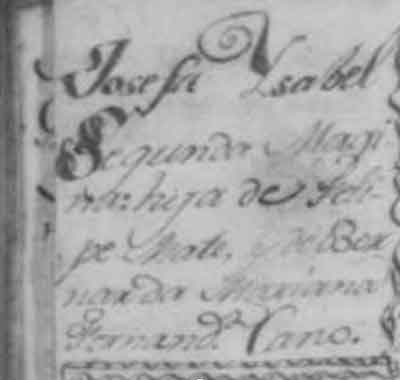 Josefa Ysabel
Segunda Magi-
na: hija de Feli-
pe Mate, y de Ber
narda Mariana
Fernand.ª Cano.